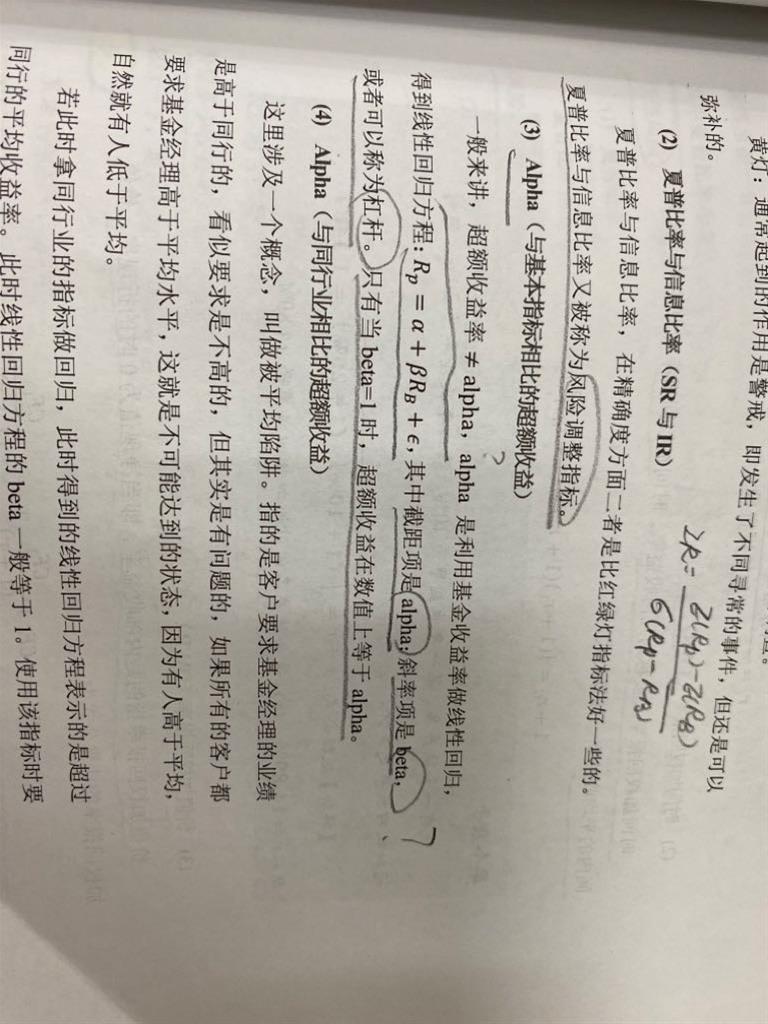 黄灯：通常起到的作用是警戒，即发生了不同寻常的事件，但还是可以
弥补的。
(2) 夏普比率与信息比率（SR 与 IR）
IR = E(Rp) - E(RB)
σ(Rp - RB)
夏普比率与信息比率，在精确度方面二者是比红绿灯指标法好一些的。
夏普比率与信息比率又被称为风险调整指标。
(3) Alpha（与基本指标相比的超额收益）
一般来讲，超额收益率 ≠ alpha，alpha 是利用基金收益率做线性回归，
得到线性回归方程：Rp = α + βRB + ϵ，其中截距项是 alpha，斜率项是 beta，
或者可以称为杠杆。只有当 beta=1 时，超额收益在数值上等于 alpha。
(4) Alpha（与同行业相比的超额收益）
这里涉及一个概念，叫做被平均陷阱。指的是客户要求基金经理的业绩
是高于同行的，看似要求是不高的，但其实是有问题的，如果所有的客户都
要求基金经理高于平均水平，这就是不可能达到的状态，因为有人高于平均，
自然就有人低于平均。
若此时拿同行业的指标做回归，此时得到的线性回归方程表示的是超过
同行的平均收益率。此时线性回归方程的 beta 一般等于 1。使用该指标时要